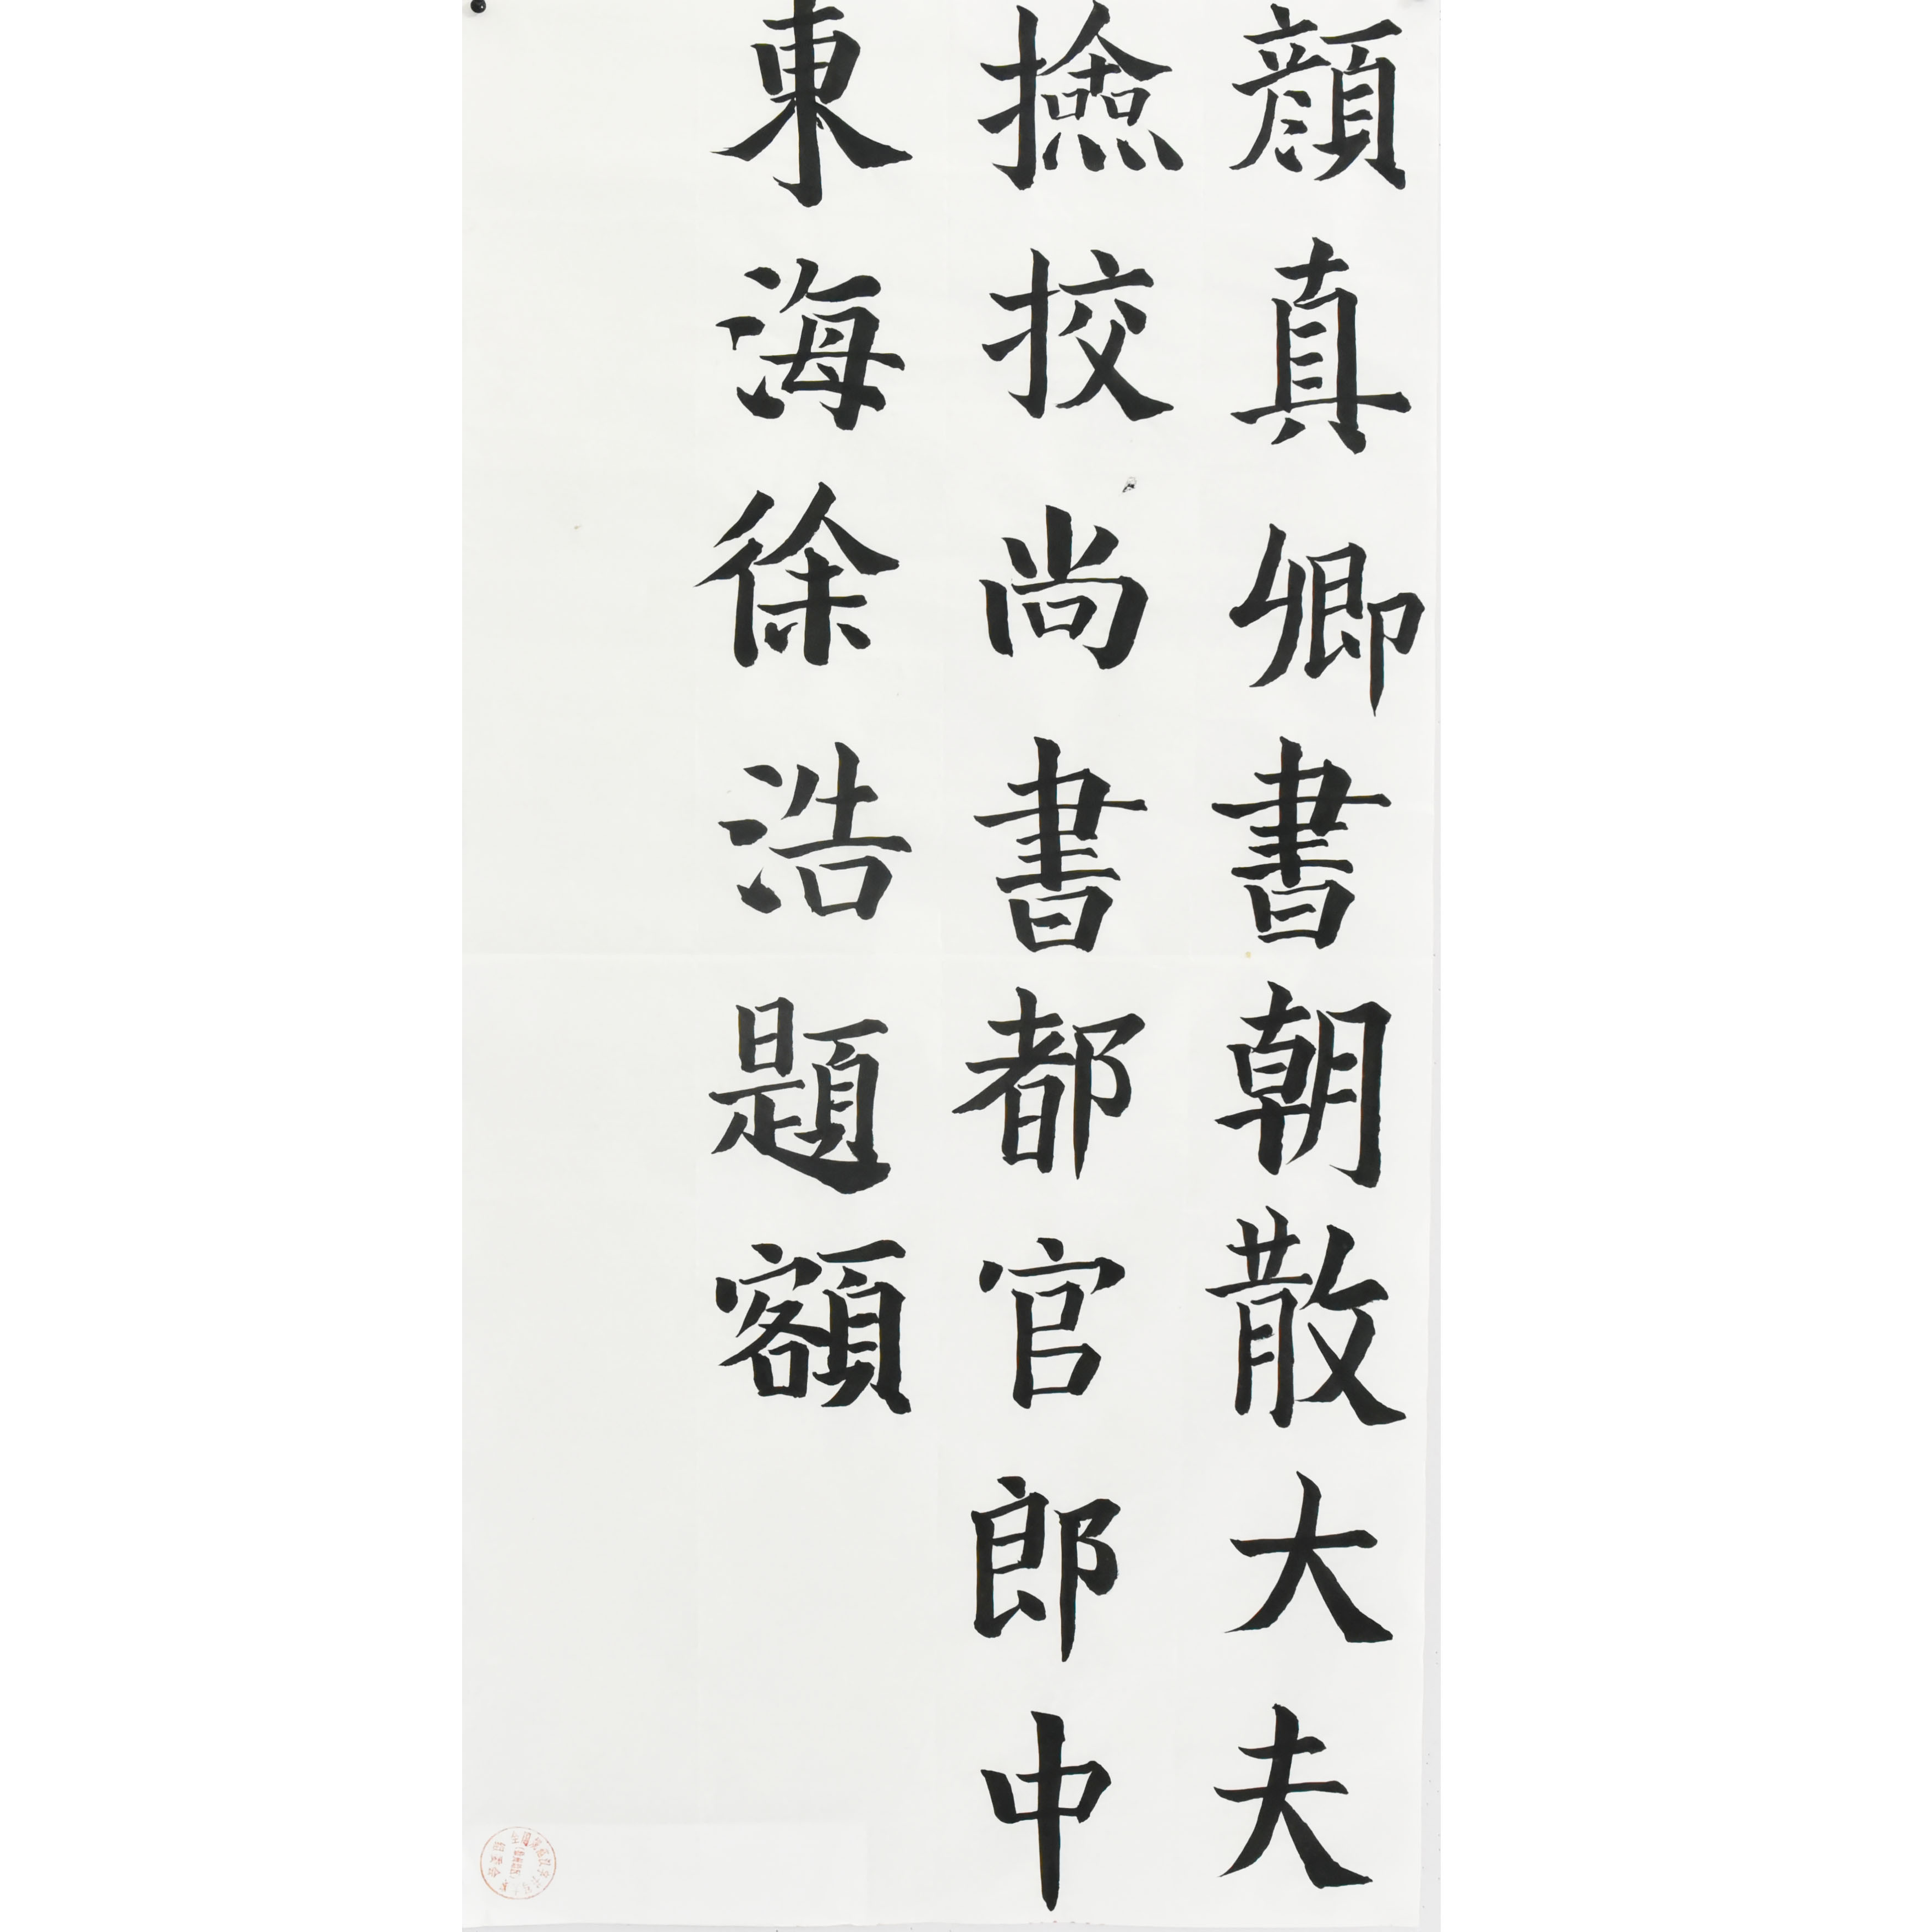 顏真卿書朝散大夫
撿挍尚書都官郎中
東海徐浩題額